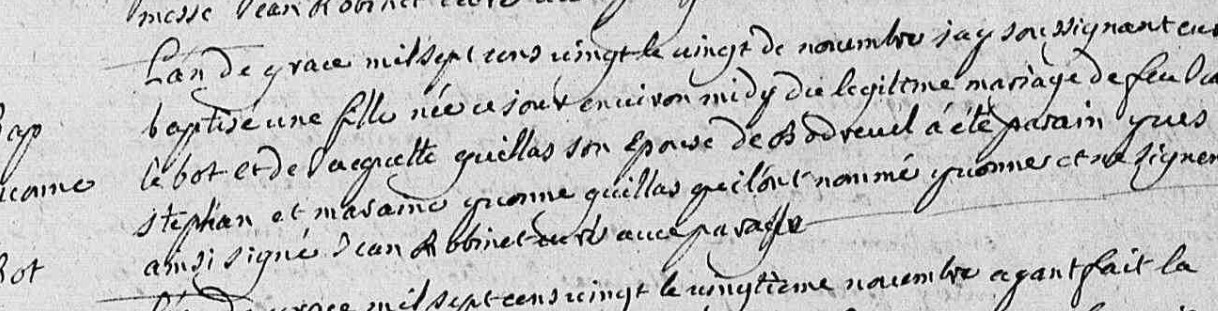 messe Jean Robinet curé
L'an de grace mil sept cens vingt le vingt de novembre j'ay soussignant curé
bap baptisé une fille née ce jour environ midy du legitime mariage de feu
le bot et de Jacquette quillas son epouse de Bodreuel á été parain yves
stephan et maraine yvonne quillas qui l'ont nommé yvonne et ne signent
ainsi signé Jean Robinet curé avec paraffe
Bot
L'an de grace mil sept cens vingt le vingtieme novembre ayant fait la